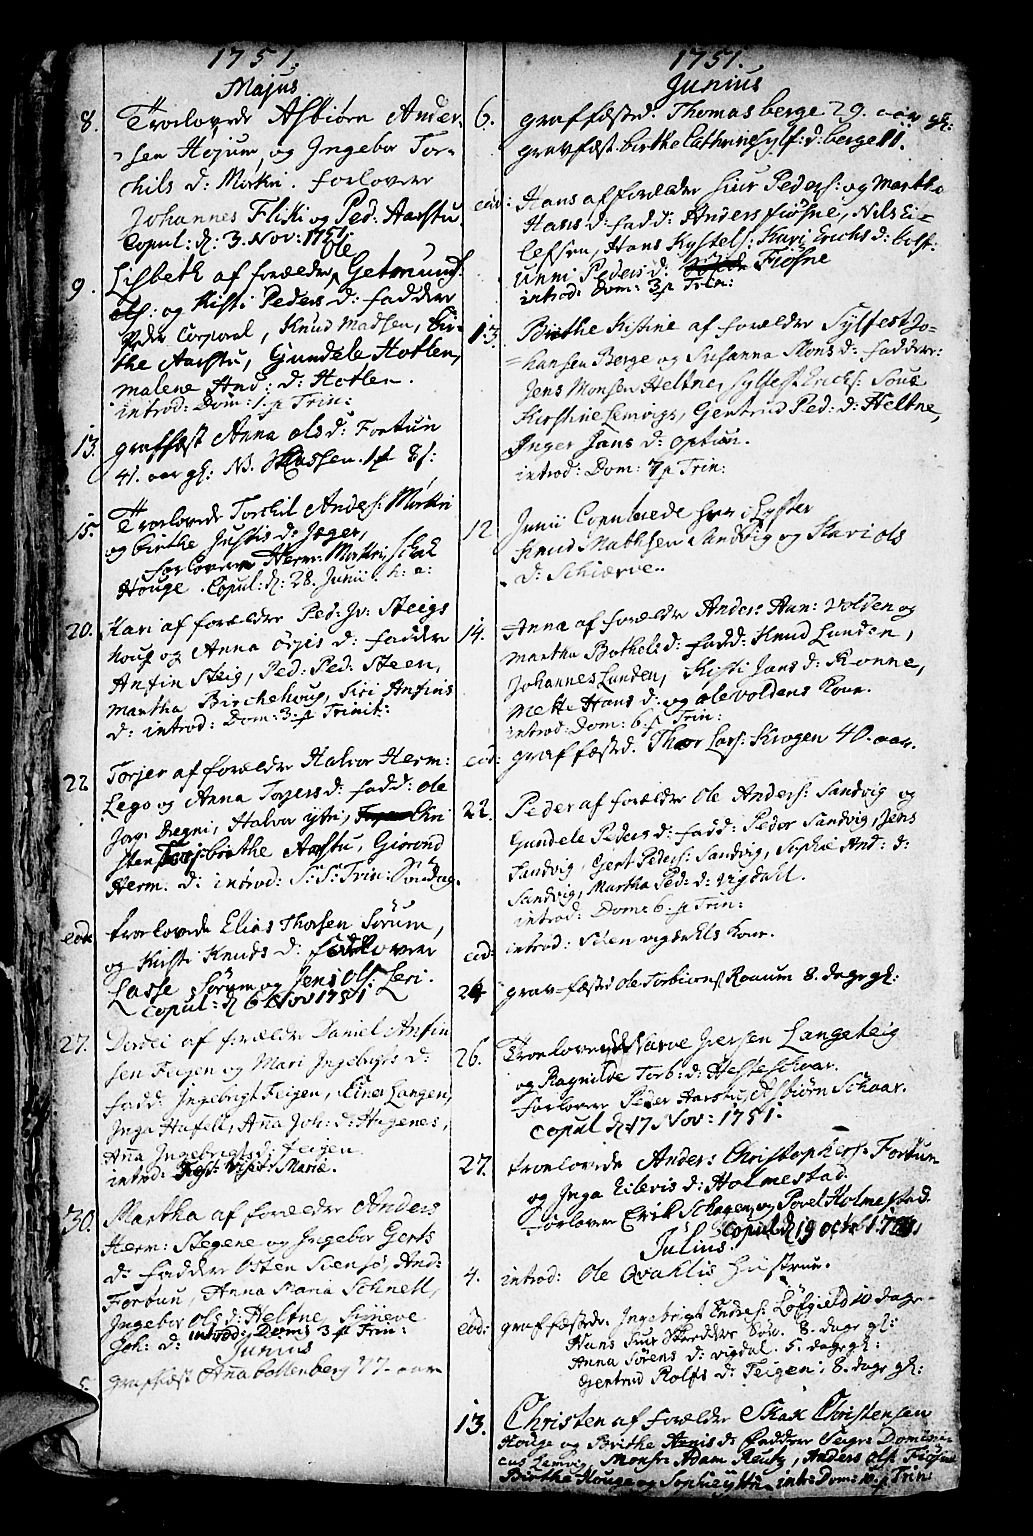 1751.
Majus
8. Troelovede Asbiørn Ander-
sen Højum, og Ingebor Tor-
chils d: Mørkri. forlovere
Johannes Fliki og Ped: Aarstu
Copul: d: 3. Nov: 1751.
9. Lisbeth af forældre Ole Getmund
ols: og Kisti Peders d: faddere
Peder Corporal, Knud Madsen, bir-
the Aarstu, Gundele Hotlen,
Malene And: d: Hotlen.
introd: Dom: 1. p Trin:
13. graffæst Anna ols d: Fortun
41. aar gl: N3.
15. Troelovede Torchil Anders: Mørkri
og birthe Justis d: Jøger,
forlovere Herm: Mørkri, Schak
Houge. Copul: d: 28. Junii. h: a:
20. Kari af forældre Ped: Steigs
houg og Anna d: faddere
Anfin Steig, Ped: Ped: Steen,
Martha Birchehoug, Siri Anfins
d: introd: Dom: 3. p Trinit:
22 Torjer af forældre Halvor Herm:
Lego og Anna Torjers d: fadd: ole
Dregni, Halvor ytri, Chri
sten birthe Aarstu, Giørond
Herm. d: introd: S: S: Trin: Søndag.
eod: troelovede Elias Thorsen Sørum,
og Kisti Knuds d: forlovere
Lasse Sørum og Jens Ols: Leri.
Copul: d 6 Nov 1751
27. Dordei af forældre Daniel Anfin
sen Feigen og Mari Ingebrigts d:
fadd: Ingebrigt Feigen, Einer Langen,
Inga Hafell, Anna Joh: d: Hugenes,
Anna Ingebrigts d: Feigen.
introd: Fest: Visit: Mariæ.
30. Martha af forældre Anders
Herm: Stegene og Ingebor Gerts
d: faddere Osten Steensø, And:
Fortun, Anna Maria Schnell,
Ingebor ols d: Heltne, Simeve
Joh: d: introd: Dom: 3. p Trin:
Junius
5. graffæst Anna bollenberg 77. aar
1751.
Junius
6. graffæsted. Thomas berge 29. aar gl:
gravfæst. birthe Cathrine Sylf: d: berge 11.
eod: Hans af forældre Siur Peders: og Martha
Hans d: fadd: Anders fiøsne, Nils Ei-
lefsen, Hans Kystels: Kari Erichs d:
Unni Peders d: Fiøsne
introd: Dom: 3 p Trin:
13. Birthe Kistine af forældre Sylfest Jo-
hansen Berge og Susanna Mons d: faddere:
Jens Monsen Heltne, Sylfest Erichs:
Kirstine Lemvigs, Gertrud Ped: d: Heltne,
Inger Jans d: optun.
introd: Dom: 7 p Trin:
12 Junii Copulerede her i Lyster
Knud Mathisen Sandvig og Kari ols
d: Schiærve.
14. Anna af forældre Anders: Aan: Volden og
Martha Bothels d: fadd: Knud Lunden,
Johannes Lunden, Kisti Jans d: Rønne,
Mette Hans d: og ole voldens Kone.
introd: Dom: 6. p Trin:
eod: graffæsted. Thoer Lars: Krogen 40. aar.
22. Peder af forældre Ole Anders: Sandvig og
Gundele Peders d: fadd: Peder Sandvig, Jens
Sandvig, Gert Peders: Sandvig, Sophie And: d:
Sandvig, Martha Ped: d: vigdahl.
introd: Dom: 6. p Trin:
eod: introd: Siren vigdahls Kone.
24 grav-fæsted ole Torbiørns: Ronum 8. dage gl:
26. Troelovede Narve Jversen Langeteig
og Ragnilde Torb: d: Hesteschaar.
forlovere Peder Aarstu, Asbiørn Schaar.
Copul d 17 Nov: 1751.
27. troelovede Anders: Christophers: Fortun
og Inga Eilevis d: Holmestad.
forlovere Erik Schagen og Povel Holmestad.
Copul d 19 octobr
Julius.
4. introd: Ole Qvaklis Hustrue.
eod: graffæstede. Ingebrigt Endres: Løfgield 10 dage.
Hans Siur Skredders Søn. 8. dage gl:
Anna Sørens d: vigdal. 5. dage gl:
Gertrud Rolfs d: Feigen: 8. dage gl:
13. Christen af forældre Skak Christensen
Houge og Birthe d: faddere Seigr Domini-
cus Lemvig, Monsr: Adam Reutz, Anders ols: Fiøsne
Birthe Houge og Sophie ytri. int: Dom: 10. p Trin